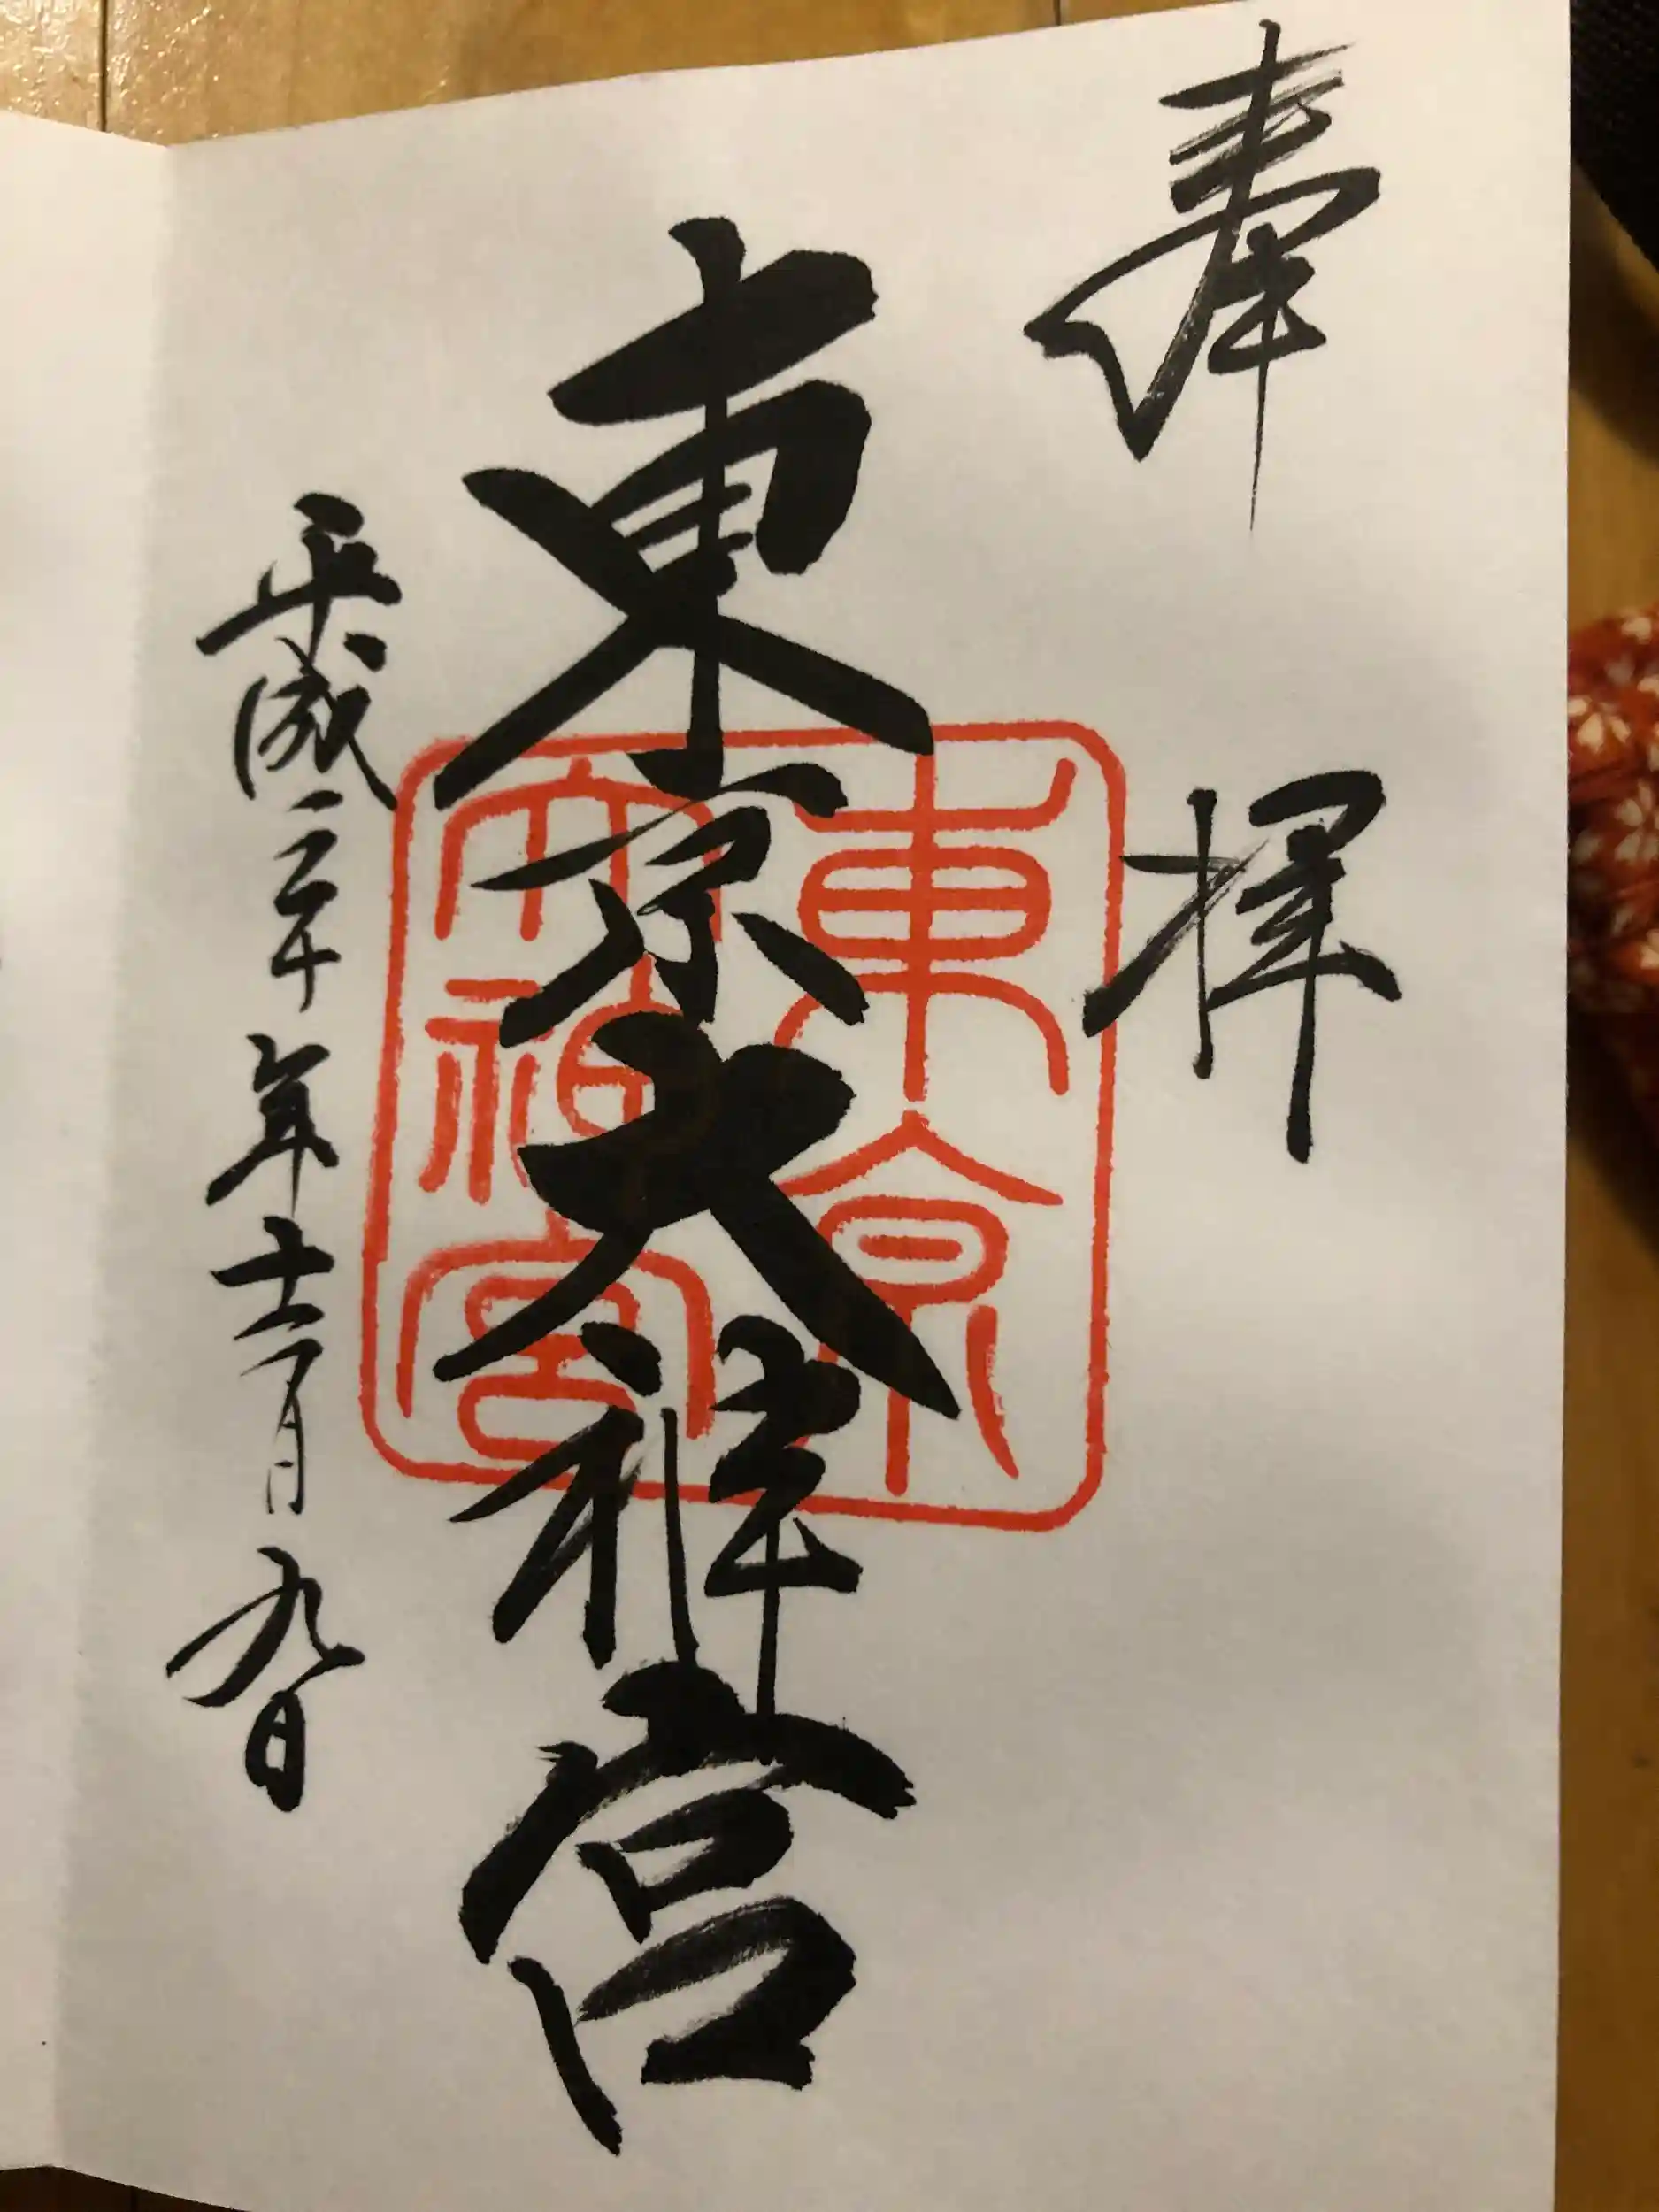 奉拝
東京大神宮
平成三十年十二月九日
東京
大神宮